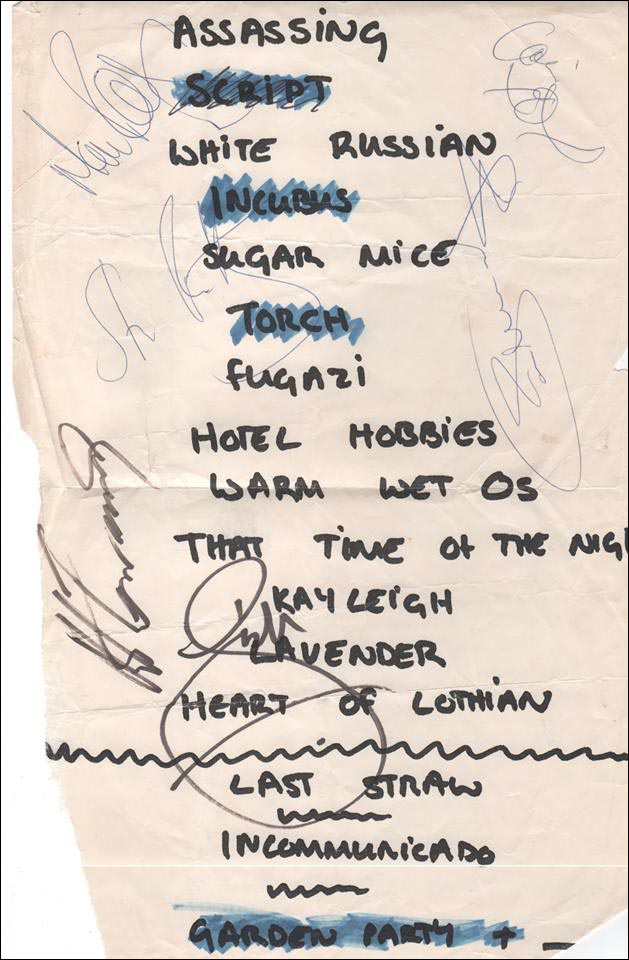 ASSASSING
SCRIPT
WHITE RUSSIAN
INCUBUS
SUGAR MICE
TORCH
FUGAZI
HOTEL HOBBIES
WARM WET OS
THAT TIME Of THE NIG
KAYLEIGH
LAVENDER
HEART OF LOTHIAN
LAST STRAW
INCOMMUNICADO
GARDEN PARTY +